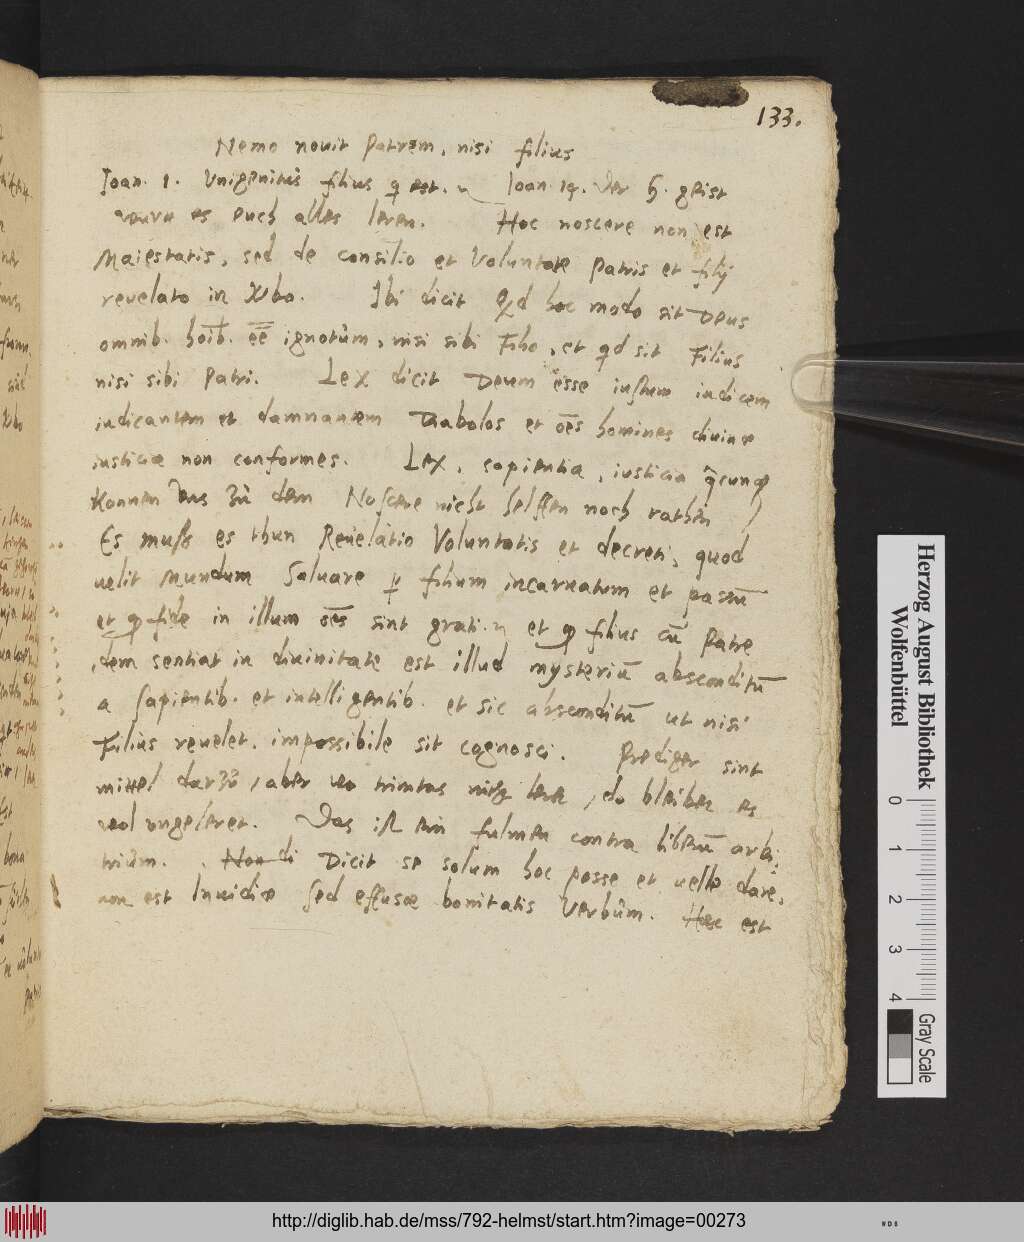 133.
Nemo nouit Patrem, nisi filius
Joan. 1. Vnigenitus filius q est. Ioan. 14. Der h. geist
wirt es euch alles leren. Hoc noscere non est
Maiestatis, sed de consilio et Voluntate Patris et filij
reuelato in Vbo. Ibi dicit Qd hoc modo sit Deus
omnib. hoīb. eē ignotum, nisi sibi Filio, et qd sit Filius
nisi sibi Patri. Lex dicit Deum esse iustum iudicem
iudicantem et damnantem Diabolos et oēs homines diuinae
iusticiae non conformes. Lex, sapientia, iusticia
konnen vns zu dem Noscere nicht helffen noch rathen
Es muß es thun Reuelatio Voluntatis et decreti, quod
uelit Mundum Saluare p filium incarnatum et passū
et q fide in illum oēs sint grati et q filius cū Patre
idem sentiat in diuinitate est illud mysteriū absconditū
a Sapientib. et intelligentib. et sic absconditū ut nisi
Filius reuelet, impossibile sit cognosci. Prediger sint
mittel darzu, aber wo trinitas nicht lere, do bleibet es
wol ungeleret. Das ist ein fulmen contra liberū arbi
trium. Dicit se solum hoc posse et uelle dare,
non est Inuidiae Sed effusae bonitatis Verbum. Haec est
Herzog August Bibliothek
Wolfenbüttel
0 1 2 3 4
Gray Scale
http://diglib.hab.de/mss/792-helmst/start.htm?image=00273